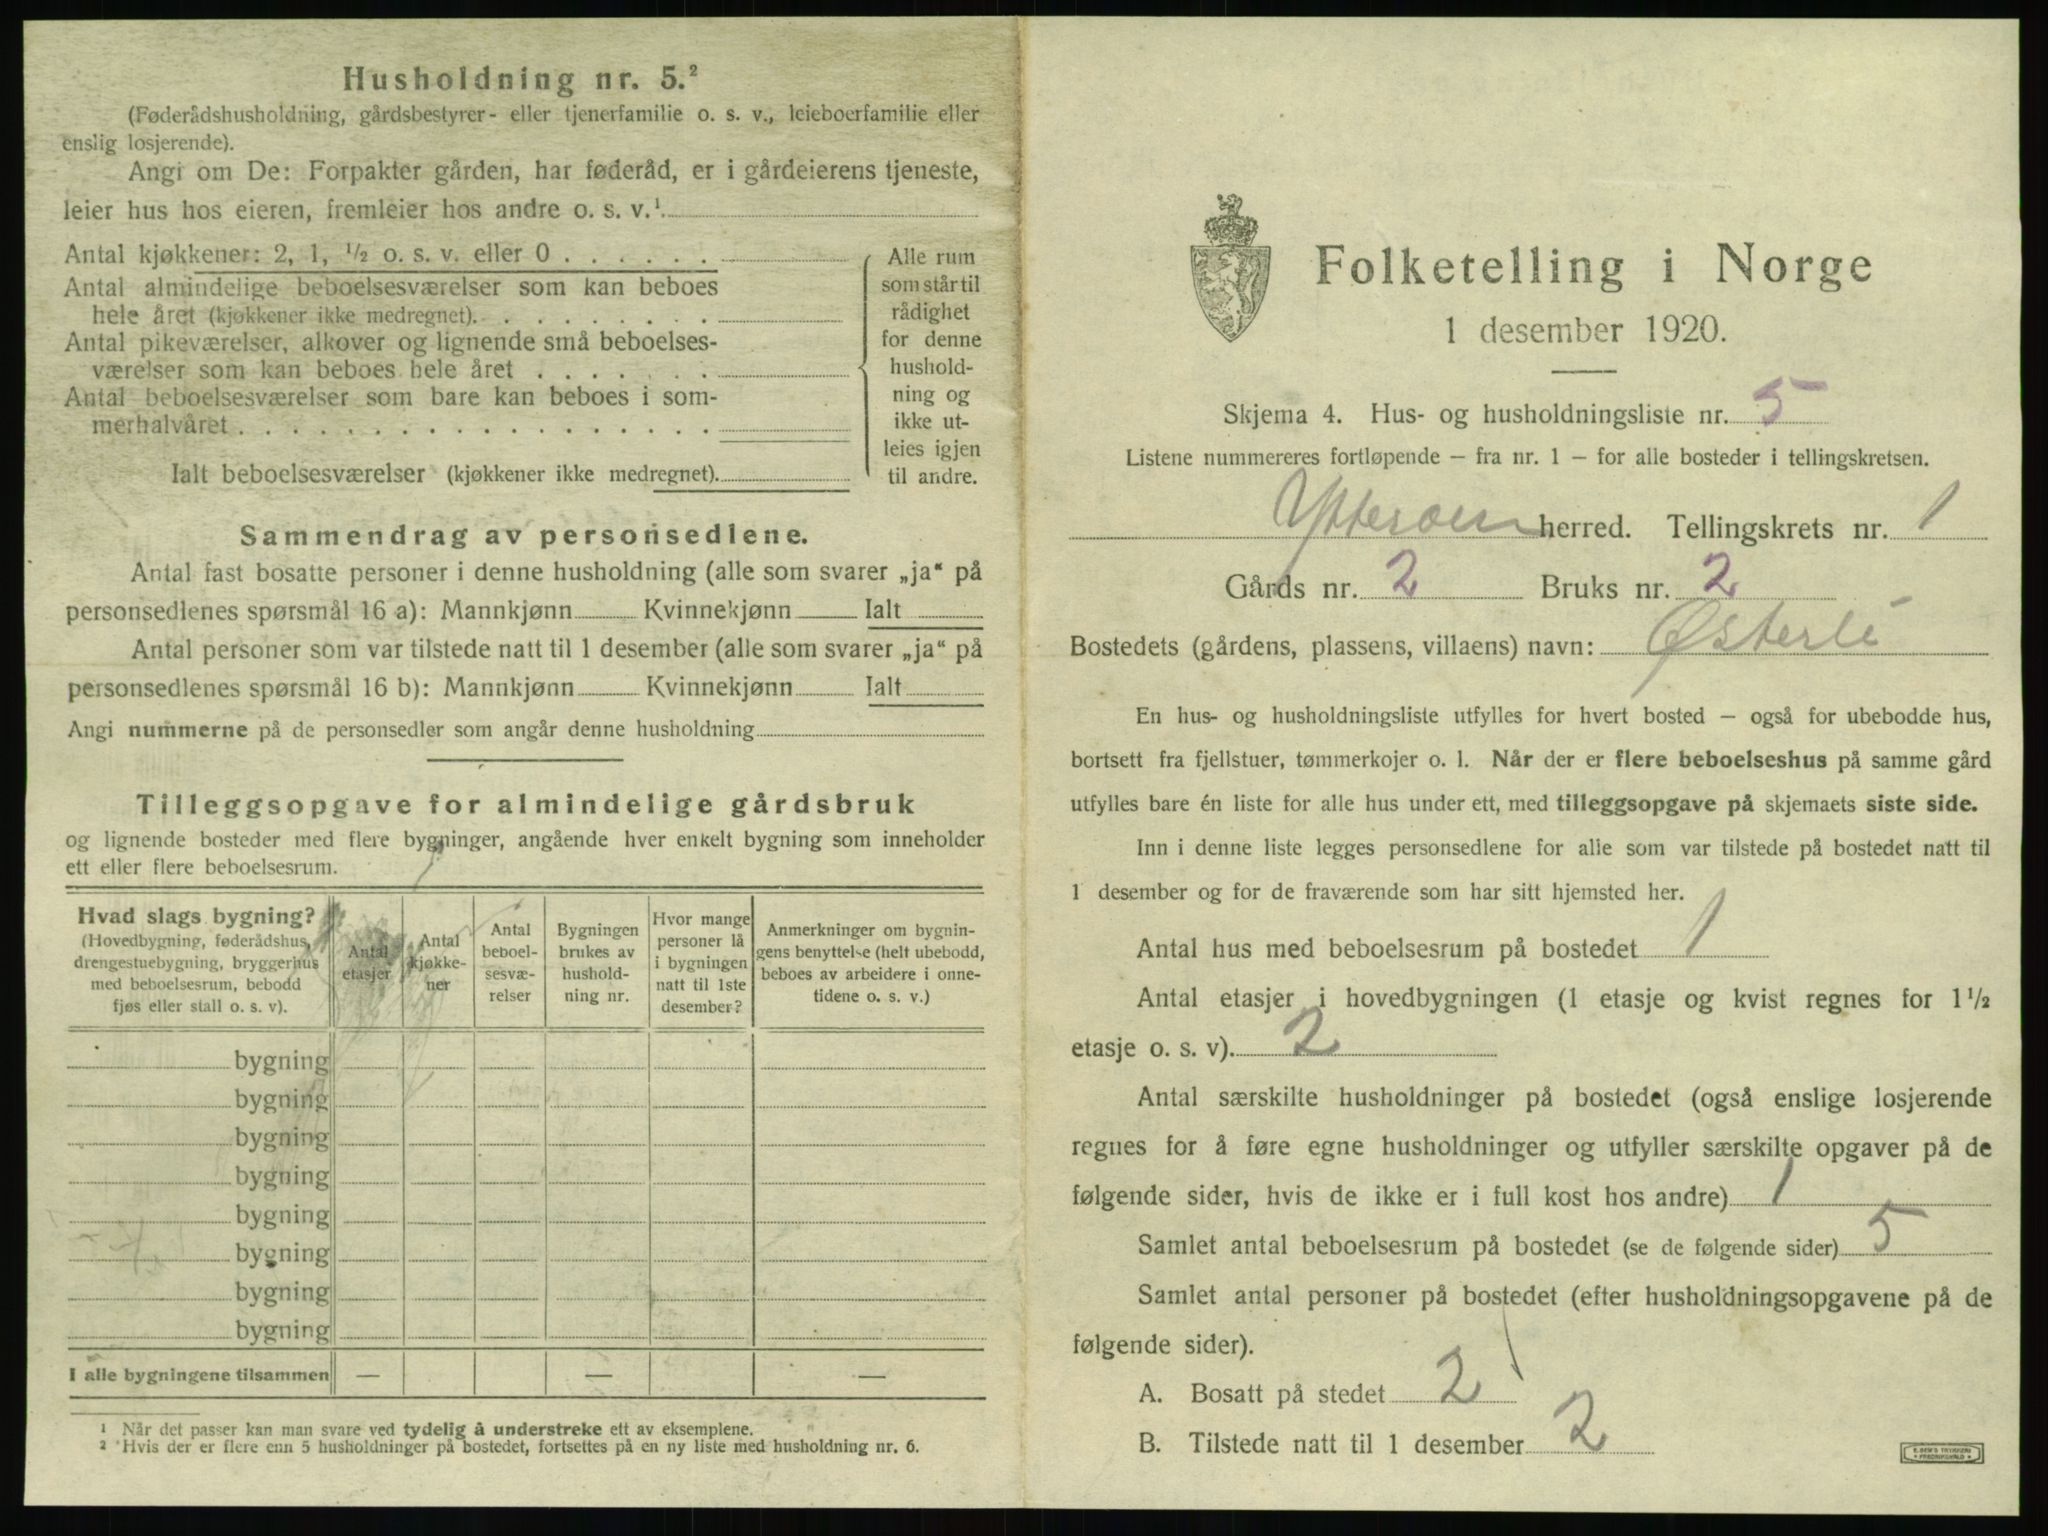 Husholdning nr. 5.²
(Føderådshusholdning, gårdsbestyrer- eller tjenerfamilie o. s. v., leieboerfamilie eller
enslig losjerende).
Angi om De: Forpakter gården, har føderåd, er i gårdeierens tjeneste,
leier hus hos eieren, fremleier hos andre o. s. v.¹
Antal kjøkkener: 2, 1, ½ o. s. v. eller 0 . . . . . .
Antal almindelige beboelsesværelser som kan beboes
hele året (kjøkkener ikke medregnet). . . . . . . . .
Antal pikeværelser, alkover og lignende små beboelses-
værelser som kan beboes hele året . . . . . . .
Antal beboelsesværelser som bare kan beboes i som-
merhalvåret . . . . . . . . . . . . . . . . . .
Ialt beboelsesværelser (kjøkkener ikke medregnet).
Alle rum
som står til
rådighet
for denne
hushold-
ning og
ikke ut-
leies igjen
til andre.
Sammendrag av personsedlene.
Antal fast bosatte personer i denne husholdning (alle som svarer „ja“ på
personsedlenes spørsmål 16 a): Mannkjønn Kvinnekjønn Ialt
Antal personer som var tilstede natt til 1 desember (alle som svarer „ja“ på
personsedlenes spørsmål 16 b): Mannkjønn Kvinnekjønn Ialt
Angi nummerne på de personsedler som angår denne husholdning
Tilleggsopgave for almindelige gårdsbruk
og lignende bosteder med flere bygninger, angående hver enkelt bygning som inneholder
ett eller flere beboelsesrum.
Hvad slags bygning?
(Hovedbygning, føderådshus,
drengestuebygning, bryggerhus
med beboelsesrum, bebodd
fjøs eller stall o. s. v).
Antal
etasjer
Antal
kjøkke-
ner
Antal
beboel-
sesvæ-
relser
Bygningen
brukes av
hushold-
ning nr.
Hvor mange
personer lå
i bygningen
natt til 1ste
desember?
Anmerkninger om bygnin-
gens benyttelse (helt ubebodd,
beboes av arbeidere i onne-
tidene o. s. v.)
bygning
bygning
bygning
bygning
bygning
bygning
bygning
bygning
I alle bygningene tilsammen — — —
¹ Når det passer kan man svare ved tydelig å understreke ett av eksemplene.
² Hvis der er flere enn 5 husholdninger på bostedet, fortsettes på en ny liste med husholdning nr. 6.
Folketelling i Norge
1 desember 1920.
Skjema 4. Hus- og husholdningsliste nr. 5
Listene nummereres fortløpende – fra nr. 1 – for alle bosteder i tellingskretsen.
Ytterøen herred. Tellingskrets nr. 1
Gårds nr. 2 Bruks nr. 2
Bostedets (gårdens, plassens, villaens) navn: Østerli
En hus- og husholdningsliste utfylles for hvert bosted – også for ubebodde hus,
bortsett fra fjellstuer, tømmerkojer o. l. Når der er flere beboelseshus på samme gård
utfylles bare én liste for alle hus under ett, med tilleggsopgave på skjemaets siste side.
Inn i denne liste legges personsedlene for alle som var tilstede på bostedet natt til
1 desember og for de fraværende som har sitt hjemsted her.
Antal hus med beboelsesrum på bostedet 1
Antal etasjer i hovedbygningen (1 etasje og kvist regnes for 1½
etasje o. s. v). 2
Antal særskilte husholdninger på bostedet (også enslige losjerende
regnes for å føre egne husholdninger og utfyller særskilte opgaver på de
følgende sider, hvis de ikke er i full kost hos andre) 1
Samlet antal beboelsesrum på bostedet (se de følgende sider) 5
Samlet antal personer på bostedet (efter husholdningsopgavene på de
følgende sider).
A. Bosatt på stedet 2
B. Tilstede natt til 1 desember 2